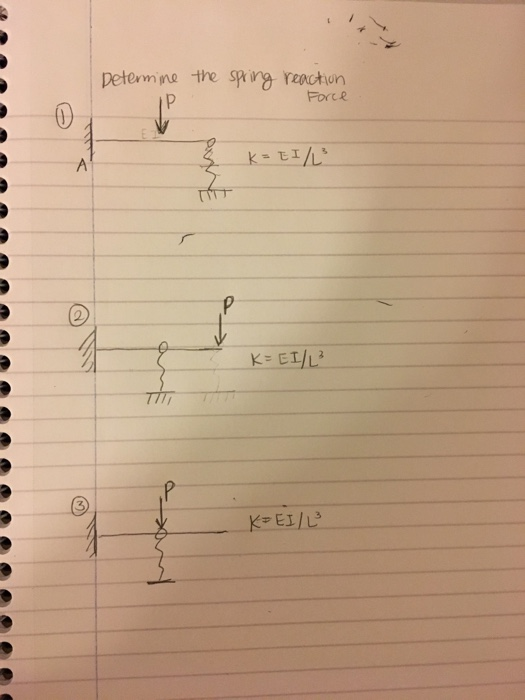 Determine the spring reaction
Force
① P
EI
A K = EI/L³
② P
K= EI/L³
③ P
K=EI/L³